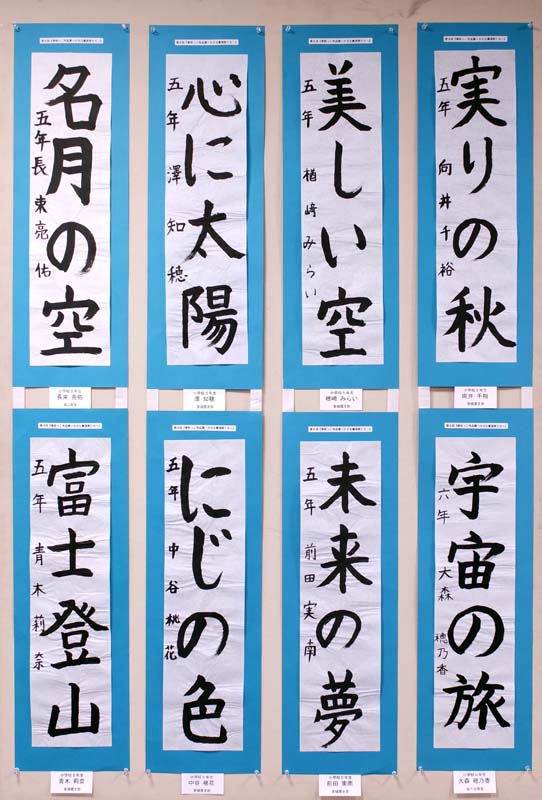 実りの秋
五年 向井千裕
美しい空
五年 楢﨑みらい
心に太陽
五年 澤知穂
名月の空
五年 長束亮佑
小学校五年生
向井 千裕
小学校五年生
楢﨑 みらい
小学校五年生
澤 知穂
小学校五年生
長束 亮佑
宇宙の旅
六年 大森穂乃香
未来の夢
五年 前田実南
にじの色
五年 中谷桃花
富士登山
五年 青木莉奈
小学校六年生
大森 穂乃香
小学校五年生
前田 実南
小学校五年生
中谷 桃花
小学校五年生
青木 莉奈